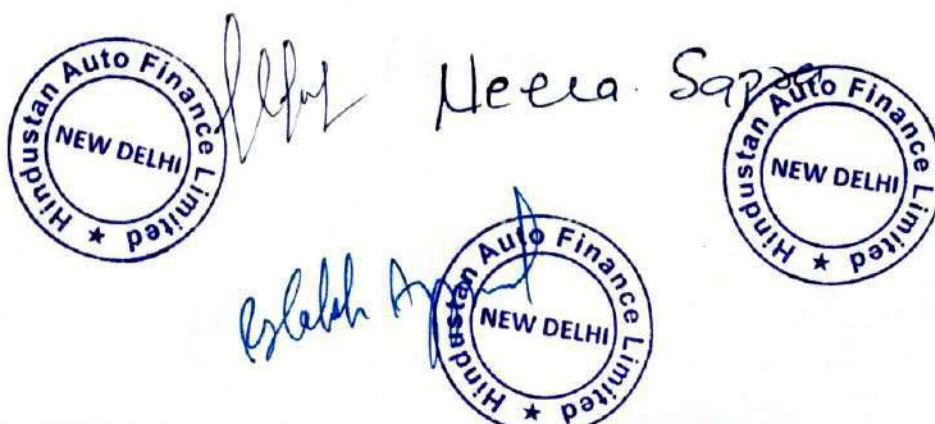 Hindustan Auto Finance Limited ★
NEW DELHI
Neera Sapra
Hindustan Auto Finance Limited ★
NEW DELHI
Hindustan Auto Finance Limited ★
NEW DELHI